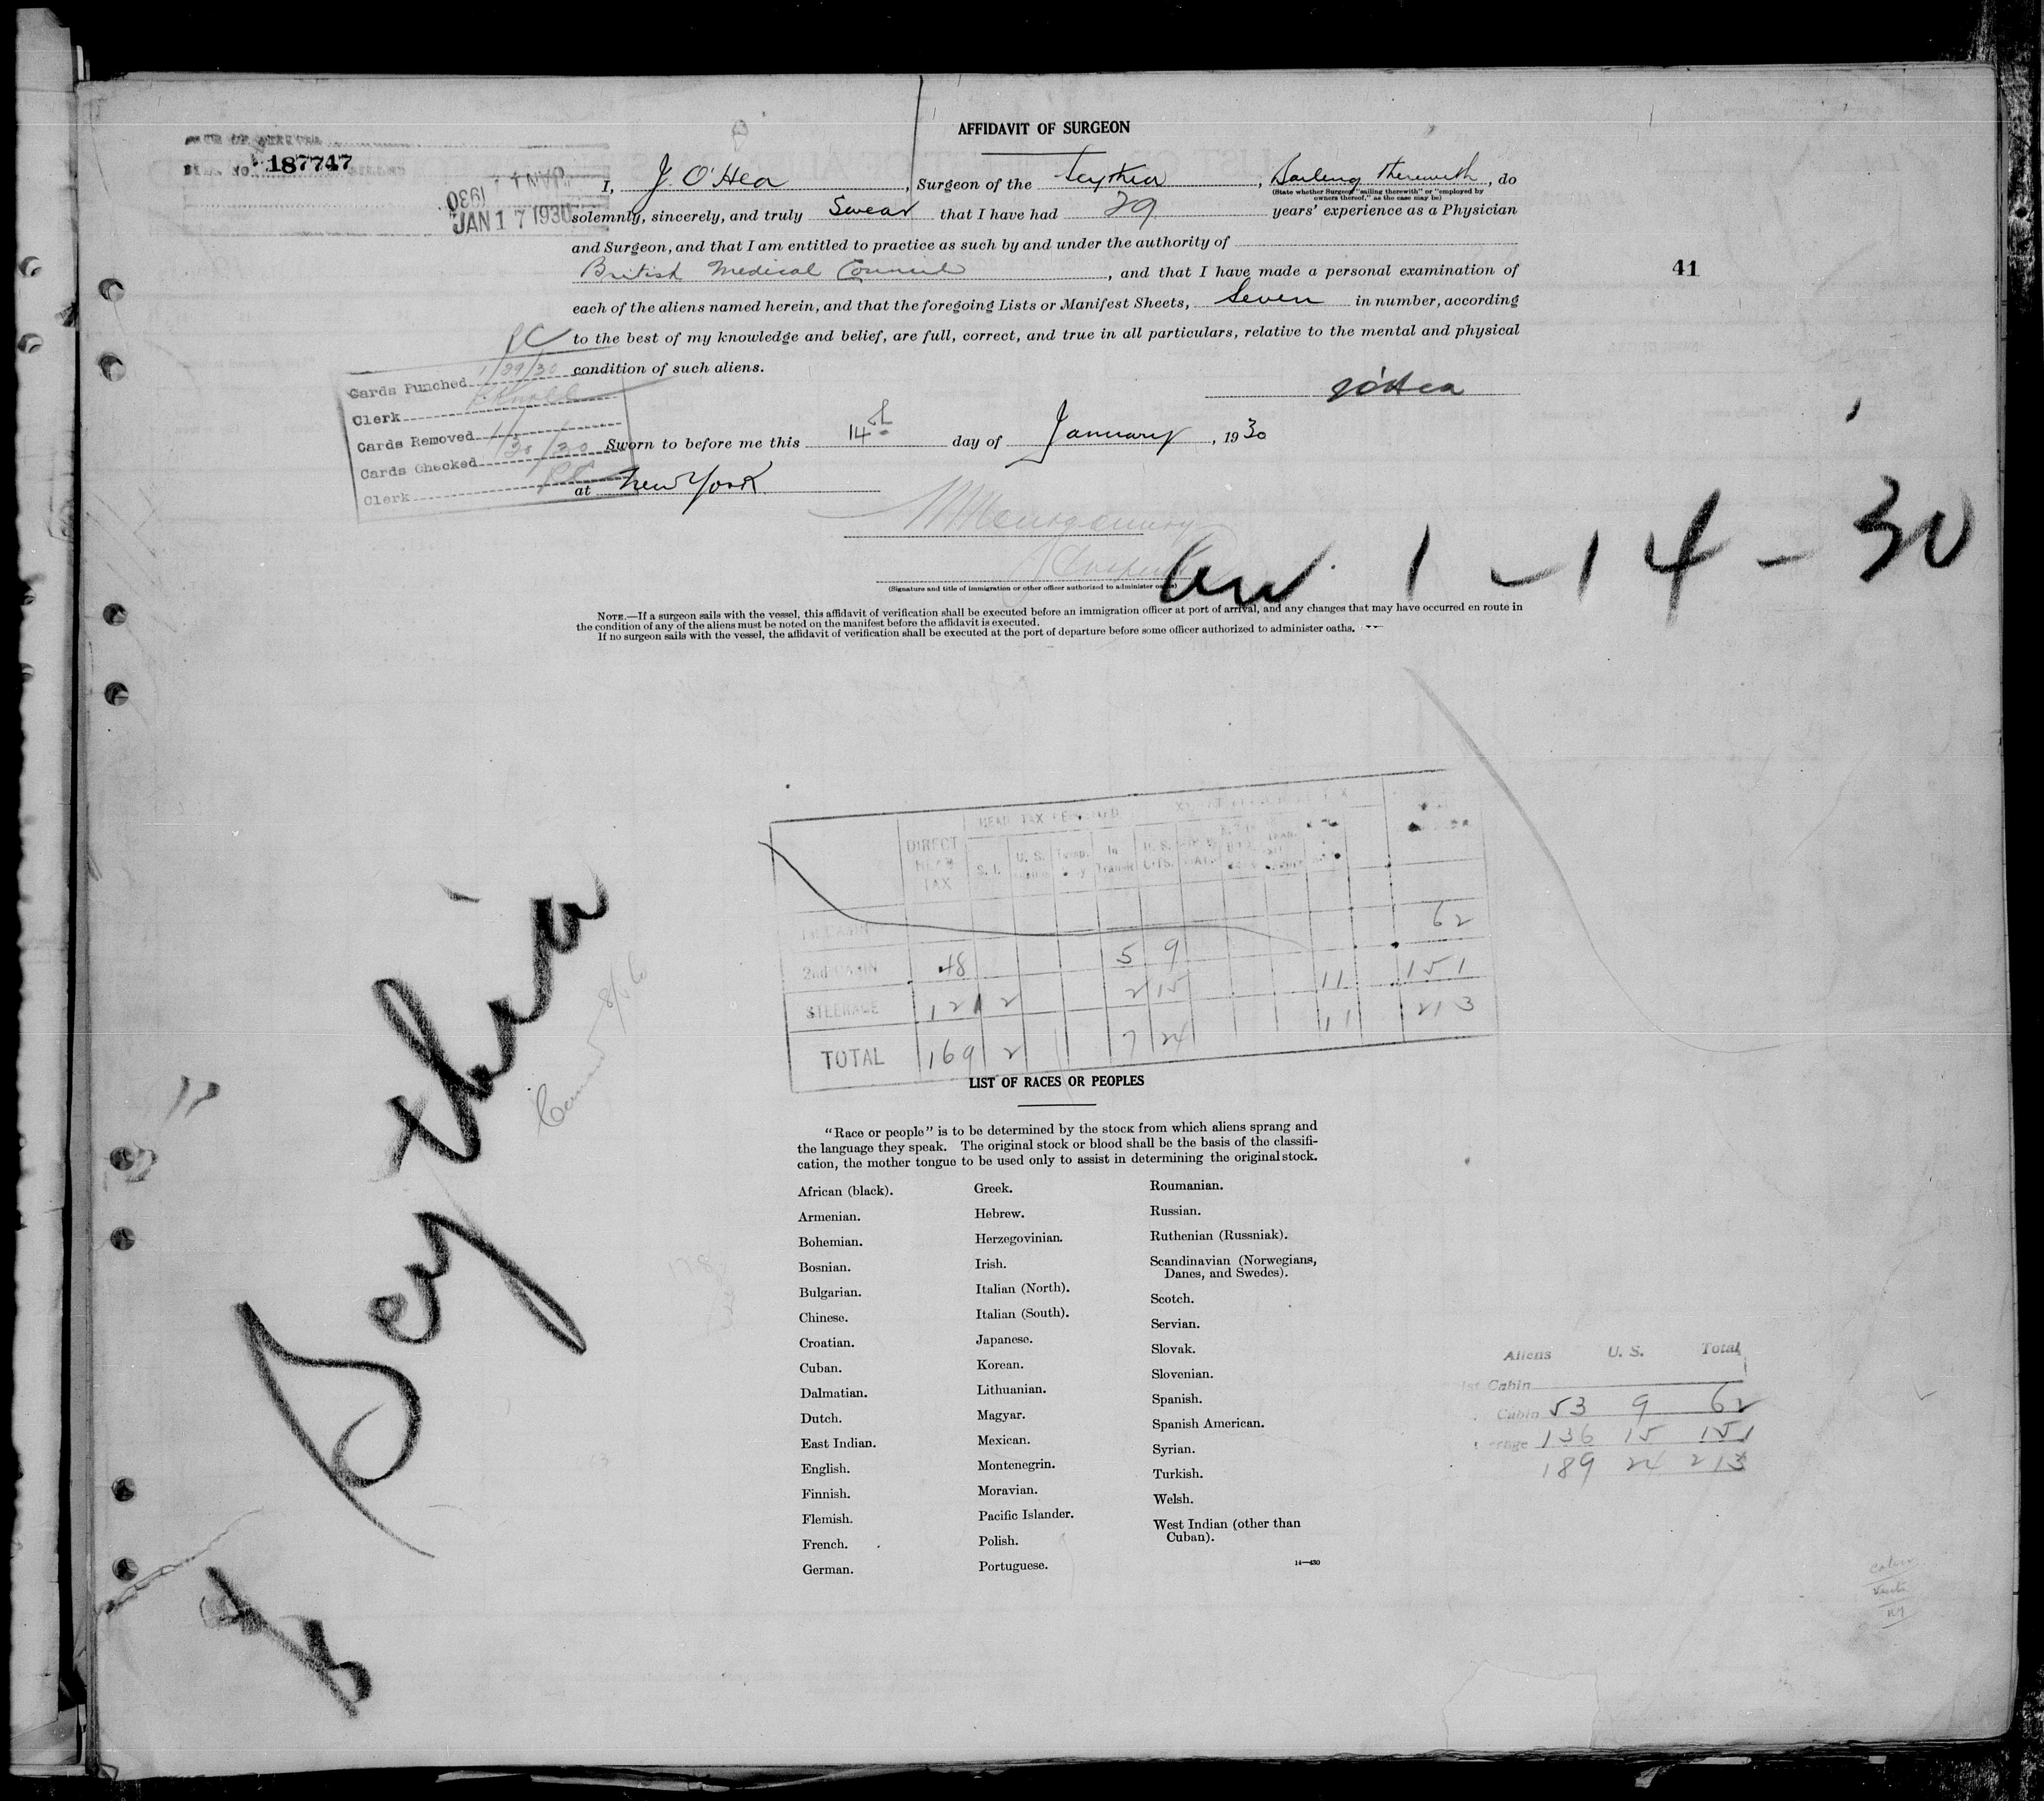 AFFIDAVIT OF SURGEON
187747
JAN 1 7 1930
I, J. O'Hea, Surgeon of the Scythia, Sailing therewith, do
(State whether Surgeon "sailing therewith" or "employed by
owners thereof," as the case may be)
solemnly, sincerely, and truly Swear that I have had 29 years' experience as a Physician
and Surgeon, and that I am entitled to practice as such by and under the authority of
British Medical Council, and that I have made a personal examination of
41
each of the aliens named herein, and that the foregoing Lists or Manifest Sheets, Seven in number, according
to the best of my knowledge and belief, are full, correct, and true in all particulars, relative to the mental and physical
condition of such aliens.
J O'Hea
Cards Punched 1/29/30
Clerk
Cards Removed
Cards Checked 1/30/30
Clerk
Sworn to before me this 14th day of January, 1930
at New York
(Signature and title of immigration or other officer authorized to administer oaths)
1-14-30
NOTE.—If a surgeon sails with the vessel, this affidavit of verification shall be executed before an immigration officer at port of arrival, and any changes that may have occurred en route in
the condition of any of the aliens must be noted on the manifest before the affidavit is executed.
If no surgeon sails with the vessel, the affidavit of verification shall be executed at the port of departure before some officer authorized to administer oaths.
Scythia
DIRECT HEAD TAX
S. I. U. S. In Transit U. S.
62
2nd CABIN 48 5 9
STEERAGE 121 2 2 15 11 151
TOTAL 169 2 7 24 11 213
LIST OF RACES OR PEOPLES
"Race or people" is to be determined by the stock from which aliens sprang and
the language they speak. The original stock or blood shall be the basis of the classifi-
cation, the mother tongue to be used only to assist in determining the original stock.
African (black).
Armenian.
Bohemian.
Bosnian.
Bulgarian.
Chinese.
Croatian.
Cuban.
Dalmatian.
Dutch.
East Indian.
English.
Finnish.
Flemish.
French.
German.
Greek.
Hebrew.
Herzegovinian.
Irish.
Italian (North).
Italian (South).
Japanese.
Korean.
Lithuanian.
Magyar.
Mexican.
Montenegrin.
Moravian.
Pacific Islander.
Polish.
Portuguese.
Roumanian.
Russian.
Ruthenian (Russniak).
Scandinavian (Norwegians,
Danes, and Swedes).
Scotch.
Servian.
Slovak.
Slovenian.
Spanish.
Spanish American.
Syrian.
Turkish.
Welsh.
West Indian (other than
Cuban).
14—430
Aliens U. S. Total
Cabin
Cabin 53 9 62
136 15 151
189 24 213